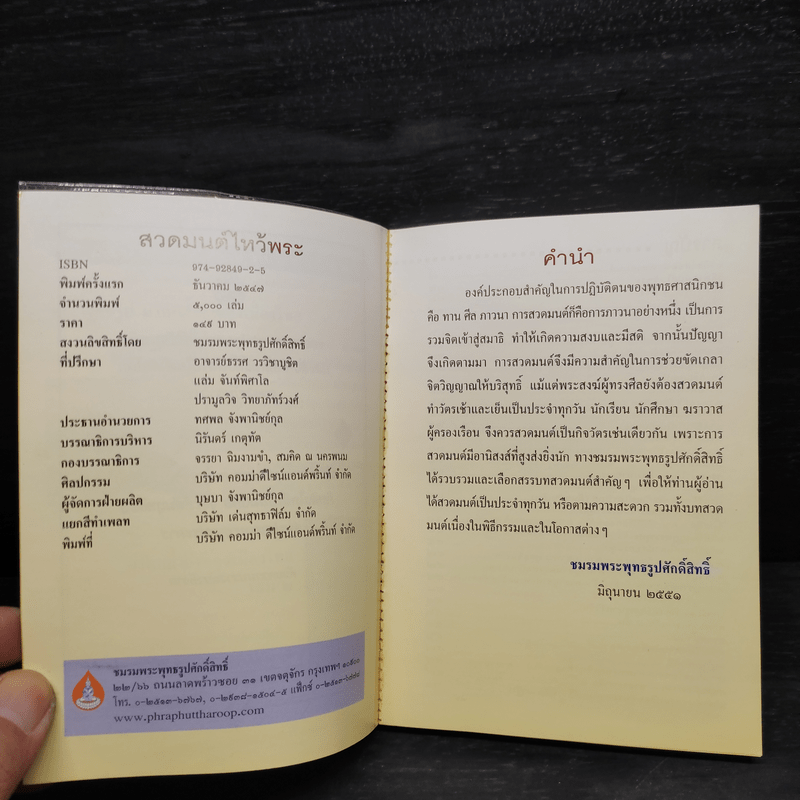 สวดมนต์ไหว้พระ
ISBN 974-92849-2-5
พิมพ์ครั้งแรก ธันวาคม ๒๕๔๗
จำนวนพิมพ์ ๕,๐๐๐ เล่ม
ราคา ๑๔๙ บาท
สงวนลิขสิทธิ์โดย ชมรมพระพุทธรูปศักดิ์สิทธิ์
ที่ปรึกษา อาจารย์ธรรศ วรวิชาบูชิต
แล่ม จันท์พิศาโล
ปรามูลวิจ วิทยาภัทร์วงศ์
ประธานอำนวยการ ทศพล จังพานิชย์กุล
บรรณาธิการบริหาร นิรันดร์ เกตุทัต
กองบรรณาธิการ จรรยา ถิมงามขำ, สมคิด ณ นครพนม
ศิลปกรรม บริษัท คอมม่าดีไซน์แอนด์พริ้นท์ จำกัด
ผู้จัดการฝ่ายผลิต บุษบา จังพานิชย์กุล
แยกสีทำเพลท บริษัท เด่นสุทธาฟิล์ม จำกัด
พิมพ์ที่ บริษัท คอมม่า ดีไซน์แอนด์พริ้นท์ จำกัด
ชมรมพระพุทธรูปศักดิ์สิทธิ์
๒๒/๖๖ ถนนลาดพร้าวซอย ๓๑ เขตจตุจักร กรุงเทพฯ ๑๐๙๐๐
โทร. ๐-๒๕๑๓-๖๗๖๗, ๐-๒๙๓๘-๑๕๐๔-๕ แฟ็กซ์
www.phraphuttharoop.com
คำนำ
องค์ประกอบสำคัญในการปฏิบัติตนของพุทธศาสนิกชน
คือ ทาน ศีล ภาวนา การสวดมนต์ก็คือการภาวนาอย่างหนึ่ง เป็นการ
รวมจิตเข้าสู่สมาธิ ทำให้เกิดความสงบและมีสติ จากนั้นปัญญา
จึงเกิดตามมา การสวดมนต์จึงมีความสำคัญในการช่วยขัดเกลา
จิตวิญญาณให้บริสุทธิ์ แม้แต่พระสงฆ์ผู้ทรงศีลยังต้องสวดมนต์
ทำวัตรเช้าและเย็นเป็นประจำทุกวัน นักเรียน นักศึกษา ฆราวาส
ผู้ครองเรือน จึงควรสวดมนต์เป็นกิจวัตรเช่นเดียวกัน เพราะการ
สวดมนต์มีอานิสงส์ที่สูงส่งยิ่งนัก ทางชมรมพระพุทธรูปศักดิ์สิทธิ์
ได้รวบรวมและเลือกสรรบทสวดมนต์สำคัญ ๆ เพื่อให้ท่านผู้อ่าน
ได้สวดมนต์เป็นประจำทุกวัน หรือตามความสะดวก รวมทั้งบทสวด
มนต์เนื่องในพิธีกรรมและในโอกาสต่าง ๆ
ชมรมพระพุทธรูปศักดิ์สิทธิ์
มิถุนายน ๒๕๕๑